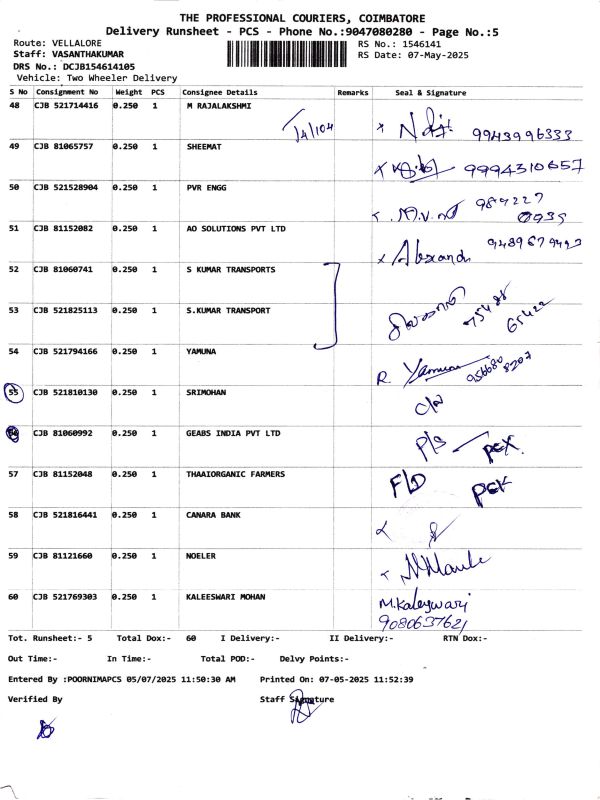 THE PROFESSIONAL COURIERS, COIMBATORE
Delivery Runsheet - PCS - Phone No.:9047080280 - Page No.:5
Route: VELLALORE
RS No.: 1546141
Staff: VASANTHAKUMAR
RS Date: 07-May-2025
DRS No.: DCJB154614105
Vehicle: Two Wheeler Delivery
S No Consignment No Weight PCS Consignee Details Remarks Seal & Signature
48 CJB 521714416 0.250 1 M RAJALAKSHMI
9943996333
49 CJB 81065757 0.250 1 SHEEMAT
9994310657
50 CJB 521528904 0.250 1 PVR ENGG
51 CJB 81152082 0.250 1 AO SOLUTIONS PVT LTD
52 CJB 81060741 0.250 1 S KUMAR TRANSPORTS
53 CJB 521825113 0.250 1 S.KUMAR TRANSPORT
75488
65422
54 CJB 521794166 0.250 1 YAMUNA
R Yamuna 956680
8207
55 CJB 521810130 0.250 1 SRIMOHAN
CJB 81060992 0.250 1 GEABS INDIA PVT LTD
P/S
57 CJB 81152048 0.250 1 THAAIORGANIC FARMERS
F/D
58 CJB 521816441 0.250 1 CANARA BANK
59 CJB 81121660 0.250 1 NOELER
60 CJB 521769303 0.250 1 KALEESWARI MOHAN
M.Kaleswari
9080637621
Tot. Runsheet:- 5 Total Dox:- 60 I Delivery:- II Delivery:- RTN Dox:-
Out Time:- In Time:- Total POD:- Delvy Points:-
Entered By :POORNIMAPCS 05/07/2025 11:50:30 AM Printed On: 07-05-2025 11:52:39
Verified By Staff Signature